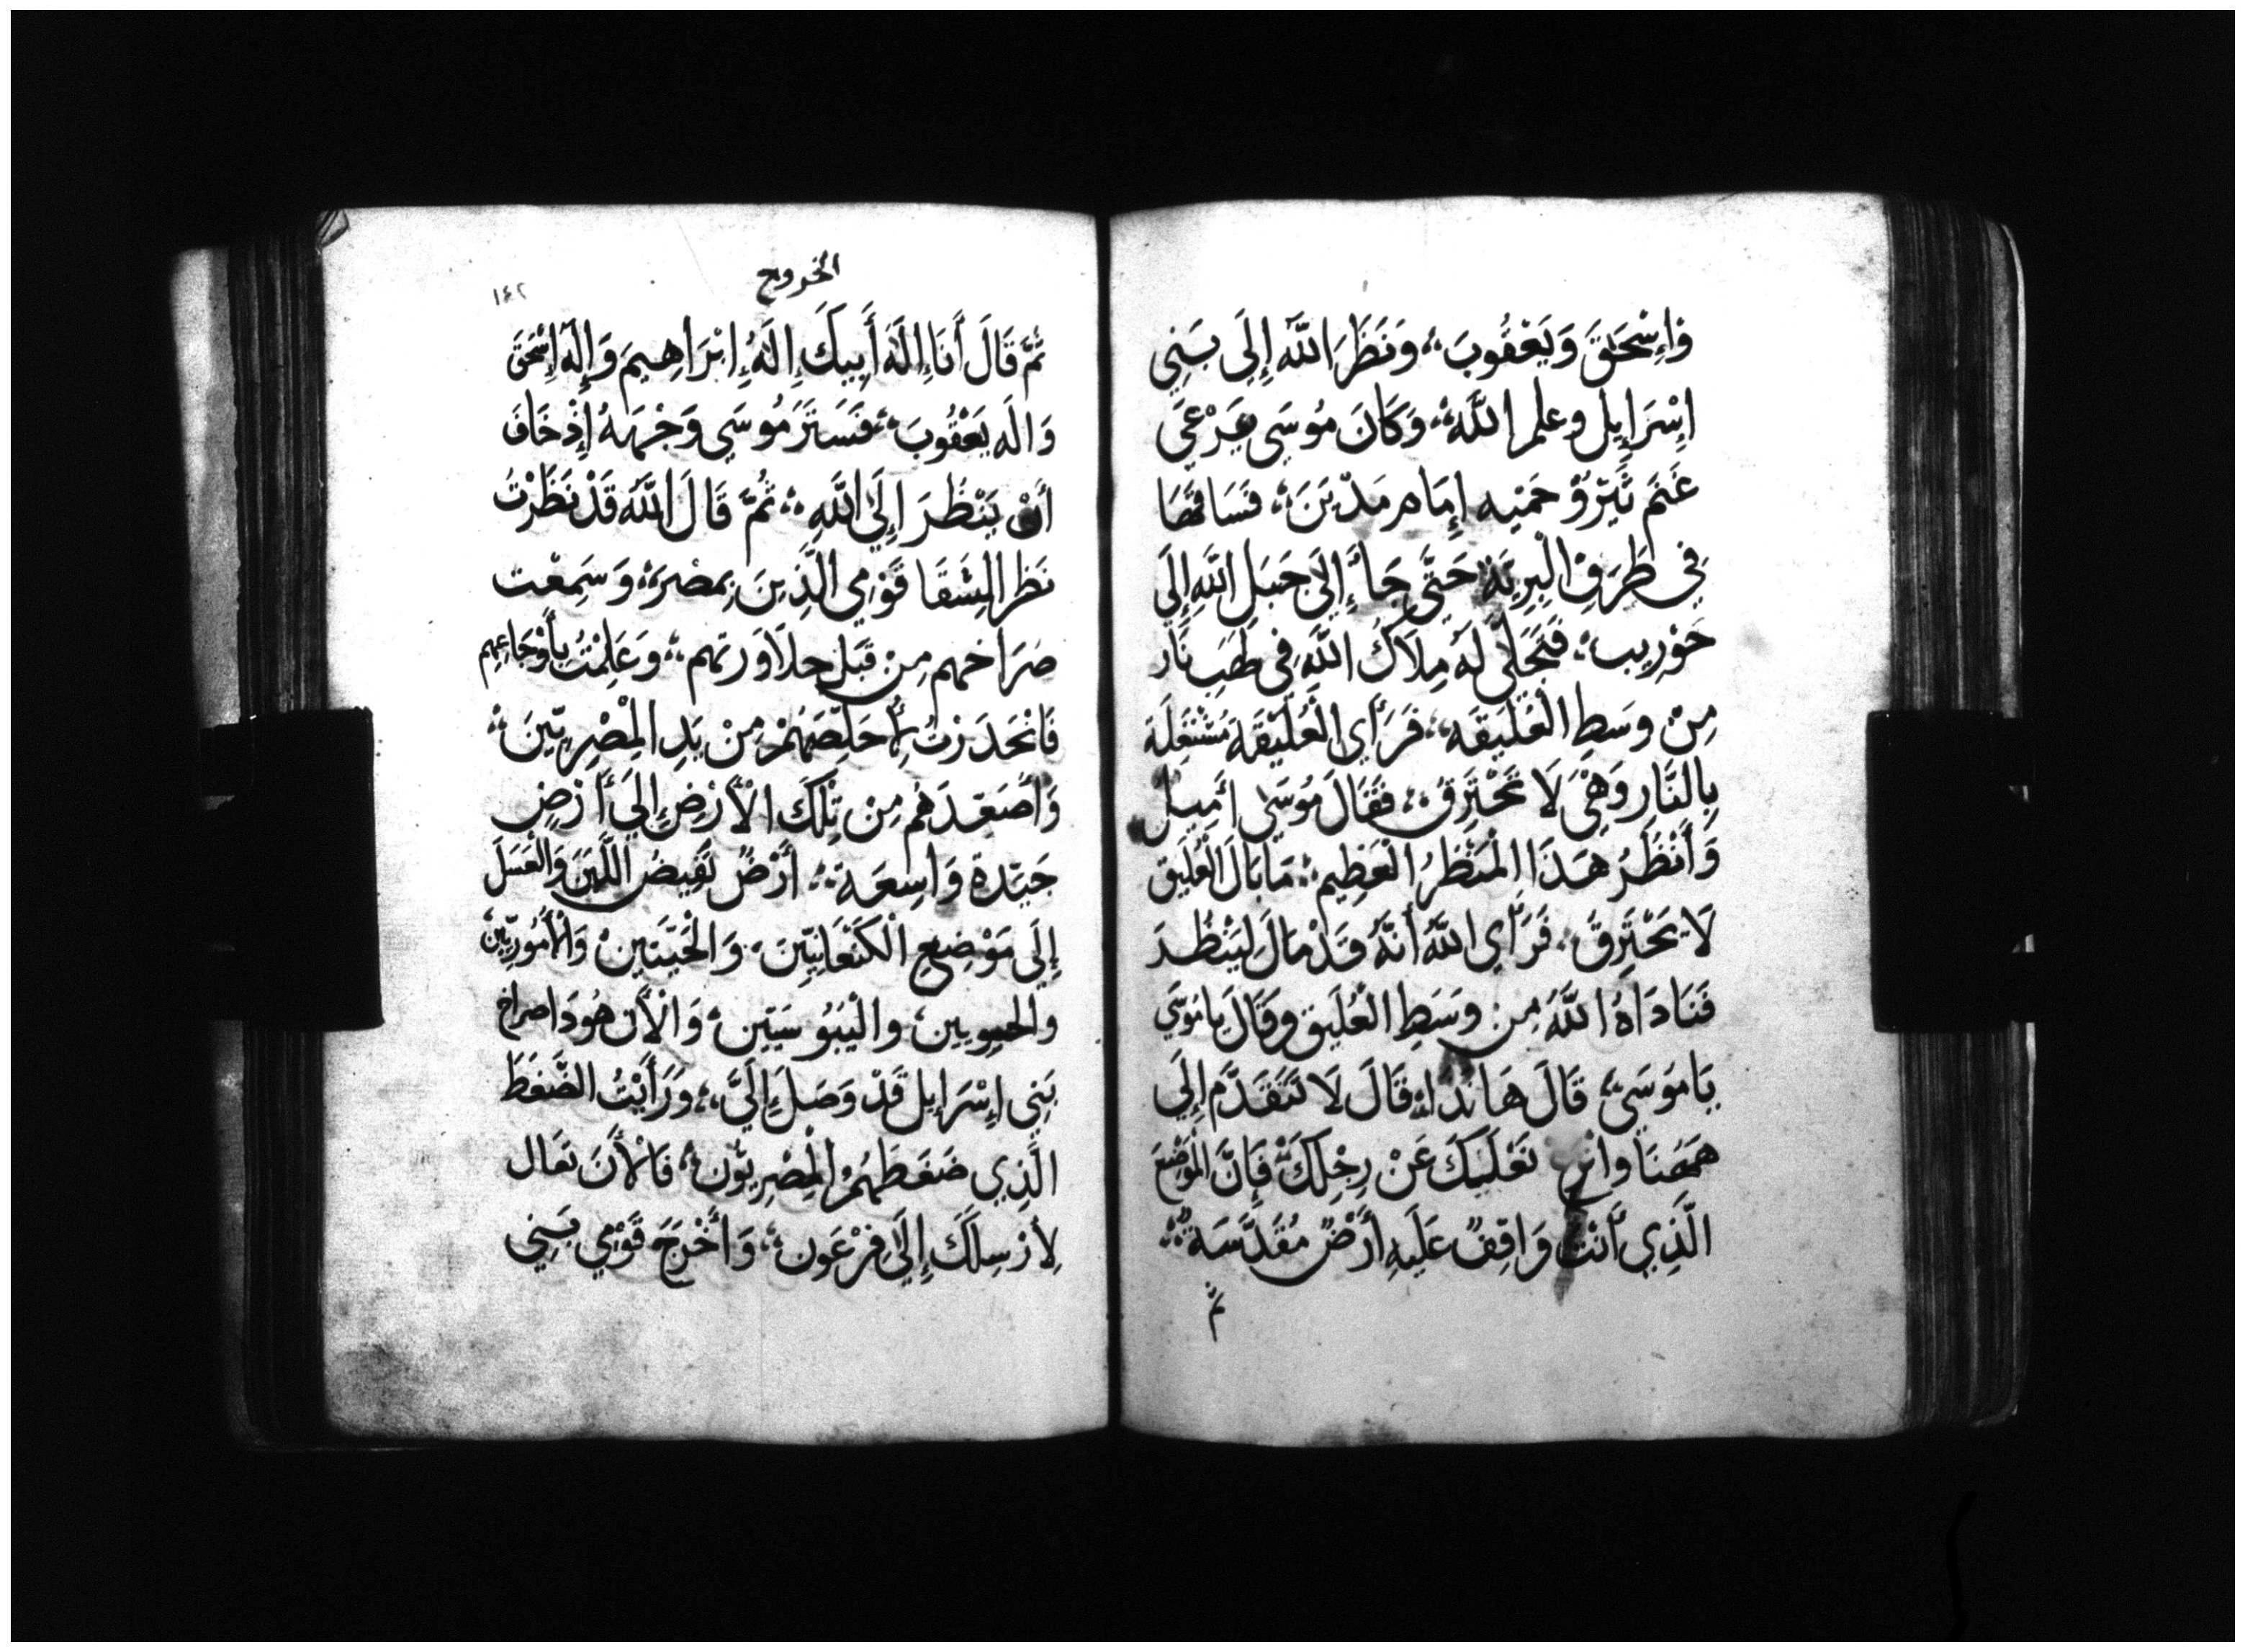 وَإِسْحَقَ وَيَعْقُوبَ، وَنَظَرَ اللَّه إِلَى بَنِي
اِسْرَايِل وعلم اللَّه، وَكَانَ مُوسَى يَرْعَى
غَنَم ثَيْرُوْ حَمْيِه إِمَام مَدْيَنَ، فَسَاقَهَا
فِي طَرَفِ الْبِرِيَةِ حَتَّى جَاءَ إِلَى جَبَلِ اللَّهِ إِلَى
حَوْرِيب، فَتَجَلَّى لَهُ مِلَاكُ اللَّهِ فِي لهَبِ نَار
مِنْ وسَطِ الْعُلَيقَه، فَرَأَى الْعُلَيْقَة مُشْتَعِلَة
بِالنَّارِ وَهْيَ لَا تَحْتَرِقُ، فَقَالَ مُوسَى أَمِيل
وَأَنْظُرُ هَذَا الْمَنْظَرُ الْعَظِيم، مَا بَالَ الْعُلَيق
لَا يَحْتَرِقُ، فَرَأَى اللَّهُ أَنَّهُ قَدْ مَالَ لِيَنْظُرَ
فَنَادَاهُ اللَّهُ مِن وسَطِ الْعُلَيق وقَالَ يامُوسَي
يَامُوسَي، قَالَ هَانَذَا، قَالَ لَا تَتَقَدَّم إِلَي
هَهُنَا وانْزع نَعْلَيكَ عَنْ رِجْلِكَ، فَإِنَّ المَوْضِعَ
الَّذِي أَنْتَ وَاقِفُ عَلَيهِ أَرْضُ مُقَدَّسَة
ثم
الخروج
١٤٢
ثُمَّ قَالَ أَنَا إِلَهُ أَبِيكَ إِلَهُ إِبْرَاهِيمَ وَإِلَهُ إِسْحَقَ
وَالَه يَعْقُوبَ، فَسَتَرَ مُوسَي وَجْهَهُ إِذْ خَافَ
أَنْ يَنْظُرَ إِلَى اللَّهِ، ثُمَّ قَالَ اللَّهُ قَدْ نَظَرْتُ
نَظر الشَقَا قَوْمِي الَّذِينَ بِمصْرَ، وَسَمِعْت
صُرَاخهم مِنْ قَبَلِ جلَاوَزتهم، وَعَلِمْتُ بأَوْجَاعِهم
فَانْحَدَرْتُ لِأُخَلِّصَهُمْ مِنْ يَدِ الْمِصْرِيّينَ،
وَأُصَعِدَهُم مِن تِلْكَ الْأَرْضِ إِلَى أَرْضٍ
جَيّدة وَاسِعَة، أَرْضُ تَفِيضُ اللَّبَنَ وَالْعَسَلَ
إِلَى مَوْضِعِ الْكَنْعَانِيّينَ، وَالْحَيَثَيِينْ وَالْأَمُورِيّينَ
والحيويين، والْيَبُوسَيّين، وَالْأَن هُودَا صراخ
بَنِي إِسْرَايل قَدْ وَصَلَ إِلَيَّ، ورَأَيْتُ الضَّغَطَ
الَّذِي ضَغَطَهُمُ الْمِصْرِيُّون، فَالْأَنَ تَعَال
لِأُرْسِلَكَ إِلَى فِرْعَون، وَأَخْرِجَ قَوْمِي بَنِي